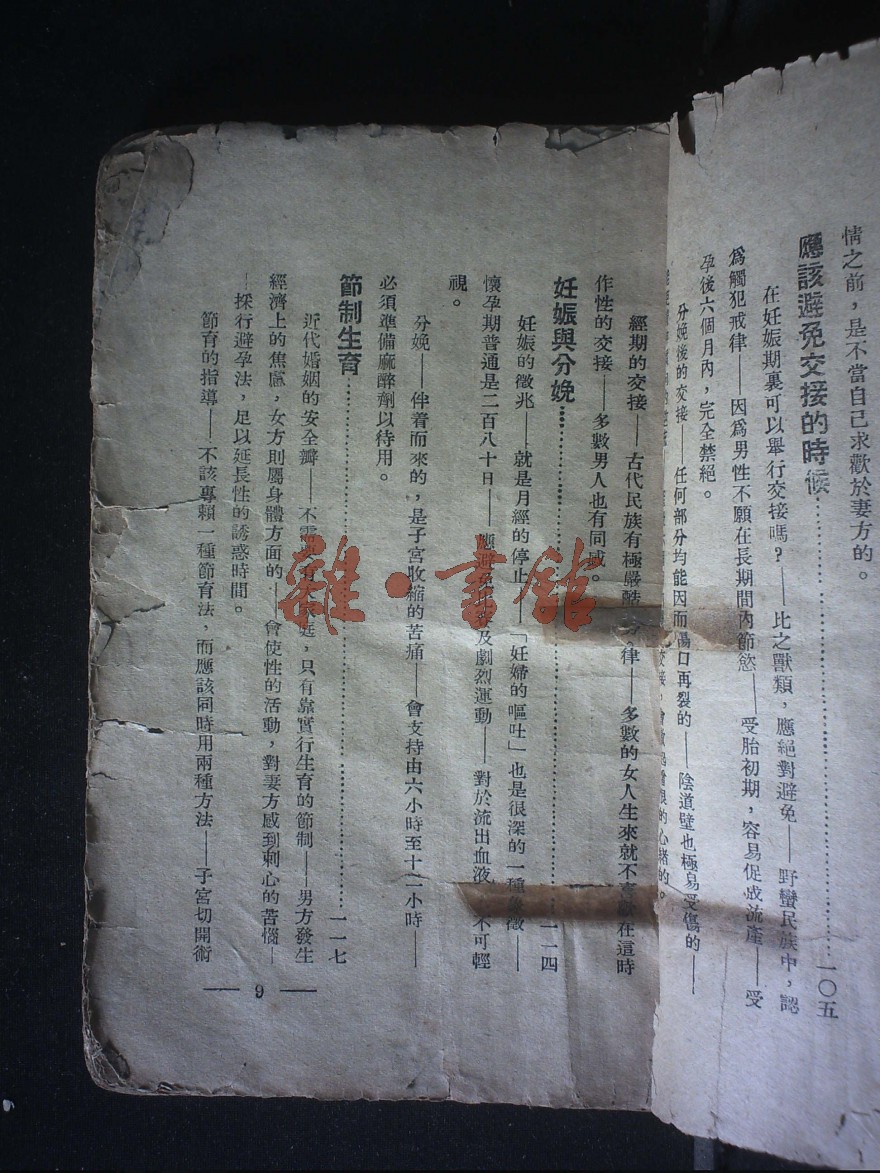 情之前，是不當自己求歡於妻方的。
應該避免交接的時候…………一〇五
在妊娠期裏可以舉行交接嗎？——比之獸類，應絕對避免——野蠻民族中，認
爲觸犯戒律——因爲男性不願在長期間內節慾——受胎初期，容易促成流產——受
孕後六個月內，完全禁絕。
分娩後的交接——任何部分均能因而傷口再裂的——陰道壁也極易受傷的——
的心緒的。
經期的交接——古代民族有極嚴酷律——多數的女人生來就不在這時
作性的交接——多數男人也有同感。
妊娠與分娩…………一一四
妊娠的徵兆——就是月經的停止——「妊婦的嘔吐」也是很深的一種徵——
懷孕期普通是二百八十日——應避免及劇烈運動——對於流出血液，不可輕
視。
分娩——伴着而來的，是子宮收縮的苦痛——會支持由六小時至十二小時——
必須準備麻醉劑以待用。
節制生育…………一一七
近代婚姻的安全瓣——不庭，只有靠實行生育的節制——男方發生
經濟上的焦慮，女方則屬身體方面的——會使性的活動，對妻方感到刺心的苦惱—
—採行避孕法，足以延長性的誘惑時間。
節育的指導——不該專賴一種節育法，而應該同時用兩種方法——子宮切開術
— 9 —
雜·書館